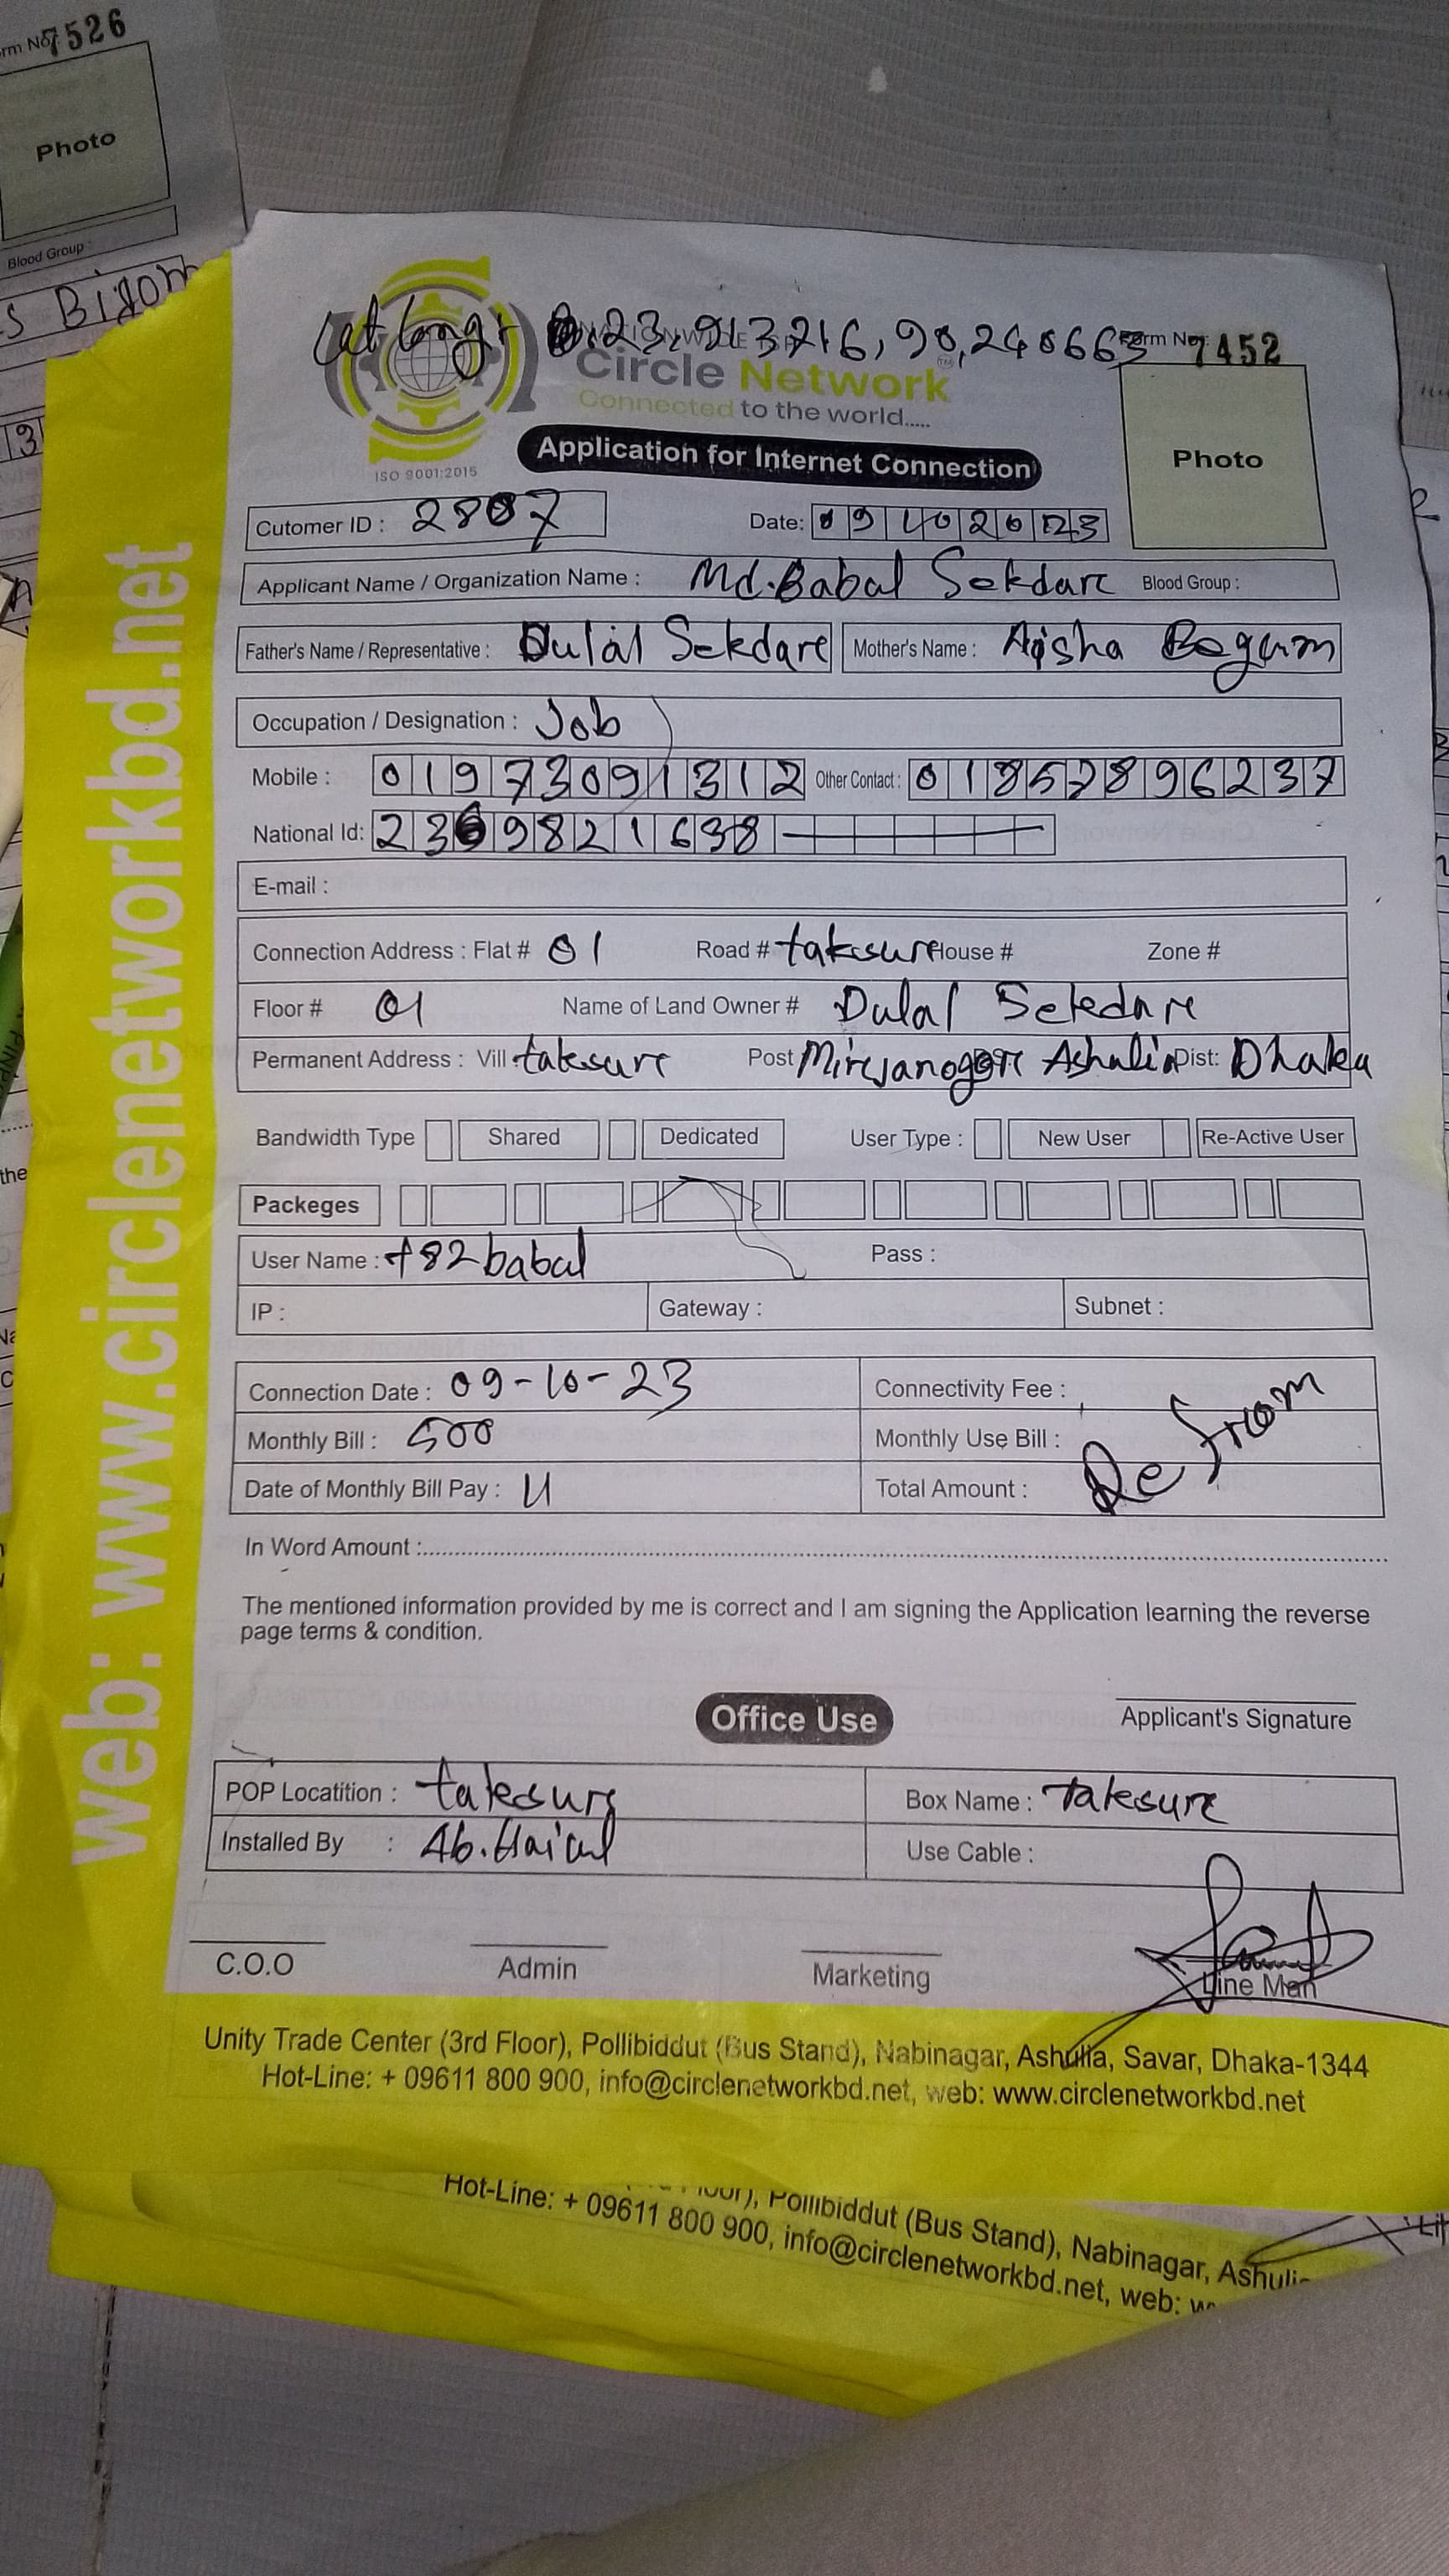 rm No: 7526
Photo
Blood Group :
s Bigom
Lat long:- 23.913216, 90.240663
Form No: 7452
Circle Network
Connected to the world.....
ISO 9001:2015
Application for Internet Connection
Photo
Cutomer ID : 2807 Date: 09102023
Applicant Name / Organization Name : Md. Babal Sekdare Blood Group :
Father's Name / Representative : Dulal Sekdare Mother's Name : Aisha Begum
Occupation / Designation : Job
Mobile : 01973091312 Other Contact : 01857896237
National Id: 2369821638
E-mail :
Connection Address : Flat # 01 Road # taksure House # Zone #
Floor # 01 Name of Land Owner # Dulal Sekdare
Permanent Address : Vill taksure Post Mirejanogor Ashulia Dist: Dhaka
Bandwidth Type Shared Dedicated User Type : New User Re-Active User
Packeges
User Name : t82babal Pass :
IP : Gateway : Subnet :
Connection Date : 09-10-23 Connectivity Fee :
Monthly Bill : 500 Monthly Use Bill :
Date of Monthly Bill Pay : 11 Total Amount :
Re from
In Word Amount :
The mentioned information provided by me is correct and I am signing the Application learning the reverse
page terms & condition.
Office Use
Applicant's Signature
POP Locatition : taksure Box Name : taksure
Installed By : Use Cable :
C.O.O Admin Marketing Line Man
Unity Trade Center (3rd Floor), Pollibiddut (Bus Stand), Nabinagar, Ashulia, Savar, Dhaka-1344
Hot-Line: + 09611 800 900, info@circlenetworkbd.net, web: www.circlenetworkbd.net
web: www.circlenetworkbd.net
Pollibiddut (Bus Stand), Nabinagar, Ashuli
Hot-Line: + 09611 800 900, info@circlenetworkbd.net, web: